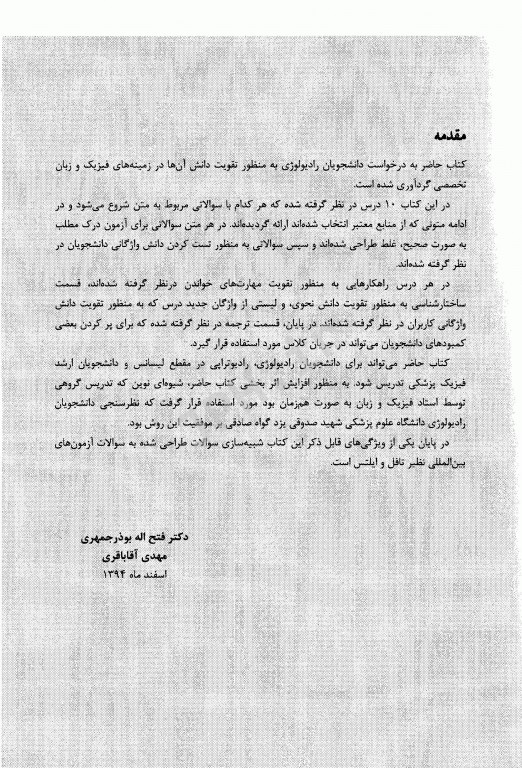 مقدمه
کتاب حاضر به درخواست دانشجویان رادیولوژی به منظور تقویت دانش آن‌ها در زمینه‌های فیزیک و زبان
تخصصی گردآوری شده است.
در این کتاب ۱۰ درس در نظر گرفته شده که هر کدام با سوالاتی مربوط به متن شروع می‌شود و در
ادامه متونی که از منابع معتبر انتخاب شده‌اند ارائه گردیده‌اند. در هر متن سوالاتی برای آزمون درک مطلب
به صورت صحیح، غلط طراحی شده‌اند و سپس سوالاتی به منظور تست کردن دانش واژگانی دانشجویان در
نظر گرفته شده‌اند.
در هر درس راهکارهایی به منظور تقویت مهارت‌های خواندن درنظر گرفته شده‌اند، قسمت
ساختارشناسی به منظور تقویت دانش نحوی، و لیستی از واژگان جدید درس که به منظور تقویت دانش
واژگانی کاربران در نظر گرفته شده‌اند. در پایان، قسمت ترجمه در نظر گرفته شده که برای پر کردن بعضی
کمبودهای دانشجویان می‌تواند در جریان کلاس مورد استفاده قرار گیرد.
کتاب حاضر می‌تواند برای دانشجویان رادیولوژی، رادیوتراپی در مقطع لیسانس و دانشجویان ارشد
فیزیک پزشکی تدریس شود. به منظور افزایش اثر بخشی کتاب حاضر، شیوه‌ای نوین که تدریس گروهی
توسط استاد فیزیک و زبان به صورت همزمان بود مورد استفاده قرار گرفت که نظرسنجی دانشجویان
رادیولوژی دانشگاه علوم پزشکی شهید صدوقی یزد گواه صادقی بر موفقیت این روش بود.
در پایان یکی از ویژگی‌های قابل ذکر این کتاب شبیه‌سازی سوالات طراحی شده به سوالات آزمون‌های
بین‌المللی نظیر تافل و ایلتس است.
دکتر فتح اله بوذرجمهری
مهدی آقاباقری
اسفند ماه ۱۳۹۴